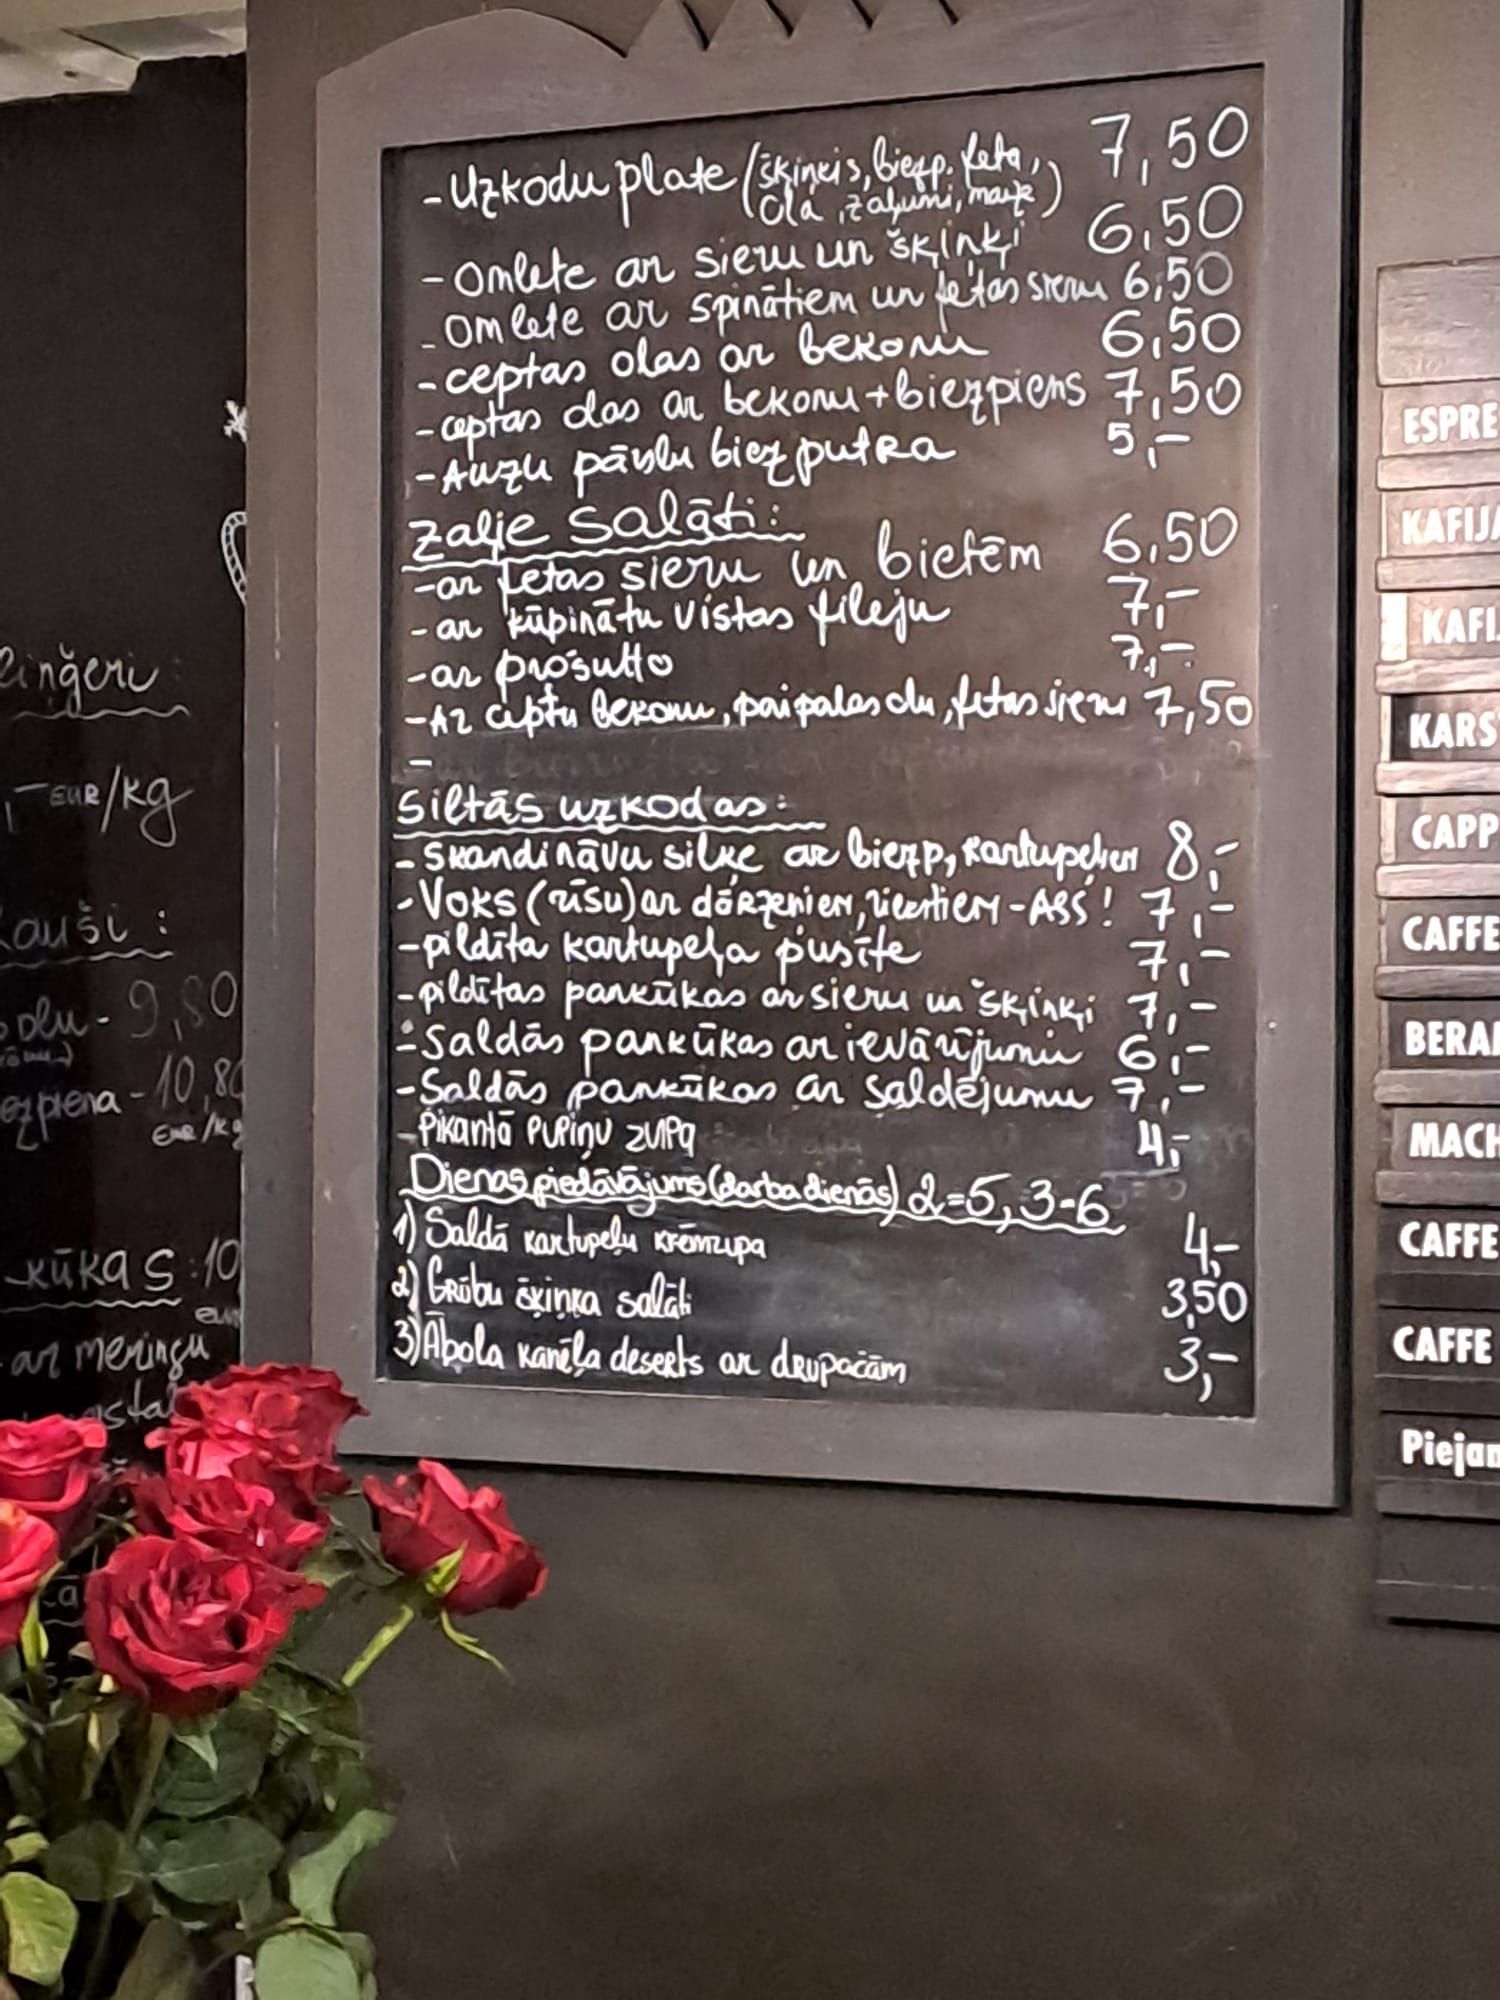 - Uzkodu plate (šķiņķis, biezp. feta, 7,50
Ola, zaļumi, maize)
- Omlete ar sieru un šķiņķi 6,50
- Omlete ar spinātiem un fetas sieru 6,50
- ceptas olas ar bekonu 6,50
- ceptas olas ar bekonu + biezpiens 7,50
- Auzu pārslu biezputra 5,-
Zaļie Salāti:
- ar fetas sieru un bietēm 6,50
- ar kūpinātu vistas fileju 7,-
- ar prošutto 7,-
- Az ceptu bekonu, paipalas olu, fetas sieru 7,50
-
Siltās uzkodas:
- Skandināvu siļķe ar biezp, kartupeļiem 8,-
- Voks (rīsu) ar dārzeņiem, riekstiem - ASS! 7,-
- pildīta kartupeļa pusīte 7,-
- pildītas pankūkas ar sieru un šķiņķi 7,-
- Saldās pankūkas ar ievārījumu 6,-
- Saldās pankūkas ar saldējumu 7,-
- Pikantā pupiņu zupa 4,-
Dienas piedāvājums (darba dienās) 2=5, 3-6
1) Saldā kartupeļu krēmzupa 4,-
2) Grūbu šķiņķa salāti 3,50
3) Ābola kanēļa deserts ar drupačām 3,-
EUR/kg
9,80
10,80
EUR/kg
ar meringu
ESPRE
KAFIJA
KAFI
KARS
CAPP
CAFFE
BERA
MACH
CAFFE
CAFFE
Piejam